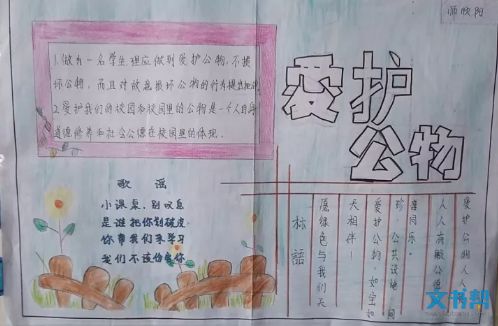 师欣阳
爱护
公物
1.做为一名学生理应做到爱护公物,不损
坏公物,而且对故意损坏公物的行为提出批评
2.爱护我们的校园和校园里的公物是一个人自身
道德修养和社会公德在校园里的体现.
歌谣
小课桌,别叹息
是谁把你划破皮
你帮我们来学习
我们不该伤害你
爱护公物人人
人人有献公德
享同乐.
珍 公共设施.同
爱护公物.如宝如
天相伴!
愿绿色与我们天
标语
文书帮